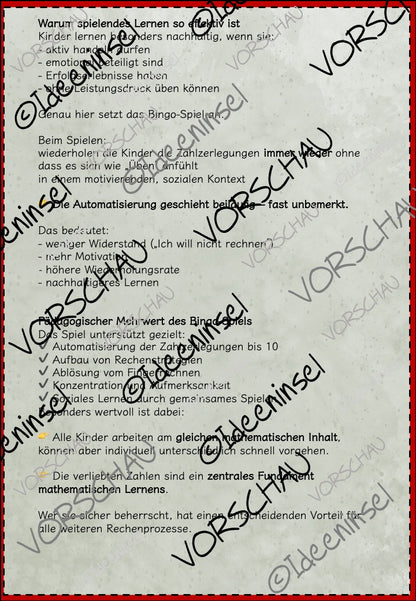 Warum spielendes Lernen so effektiv ist
Kinder lernen besonders nachhaltig, wenn sie:
- aktiv handeln dürfen
- emotional beteiligt sind
- Erfolgserlebnisse haben
- ohne Leistungsdruck üben können
Genau hier setzt das Bingo-Spiel an.
Beim Spielen:
wiederholen die Kinder die Zahlzerlegungen immer wieder ohne
dass es sich wie „Üben“ anfühlt
in einem motivierenden, sozialen Kontext
Die Automatisierung geschieht beiläufig – fast unbemerkt.
Das bedeutet:
- weniger Widerstand („Ich will nicht rechnen“)
- mehr Motivation
- höhere Wiederholungsrate
- nachhaltigeres Lernen
Pädagogischer Mehrwert des Bingo-Spiels
Das Spiel unterstützt gezielt:
✓ Automatisierung der Zahlzerlegungen bis 10
✓ Aufbau von Rechenstrategien
✓ Ablösung vom Fingerrechnen
✓ Konzentration und Aufmerksamkeit
✓ Soziales Lernen durch gemeinsames Spielen
Besonders wertvoll ist dabei:
Alle Kinder arbeiten am gleichen mathematischen Inhalt,
können aber individuell unterschiedlich schnell vorgehen.
Die verliebten Zahlen sind ein zentrales Fundament
mathematischen Lernens.
Wer sie sicher beherrscht, hat einen entscheidenden Vorteil für
alle weiteren Rechenprozesse.
VORSCHAU
©Ideeninsel
VORSCHAU
©Ideeninsel
VORSCHAU
VORSCHAU
©Ideeninsel
VORSCHAU
©Ideeninsel
VORSCHAU
VORSCHAU
©Ideeninsel